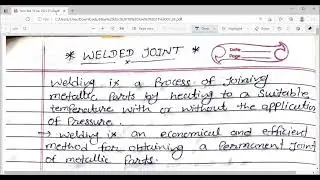 * WELDED JOINT *
Date
Page
Welding is a Process of Joining
metallic Parts by heating to a Suitable
temperature with or without the application
of Pressure.
→ Welding is an economical and efficient
method for obtaining a Permanent Joint
of metallic Parts.